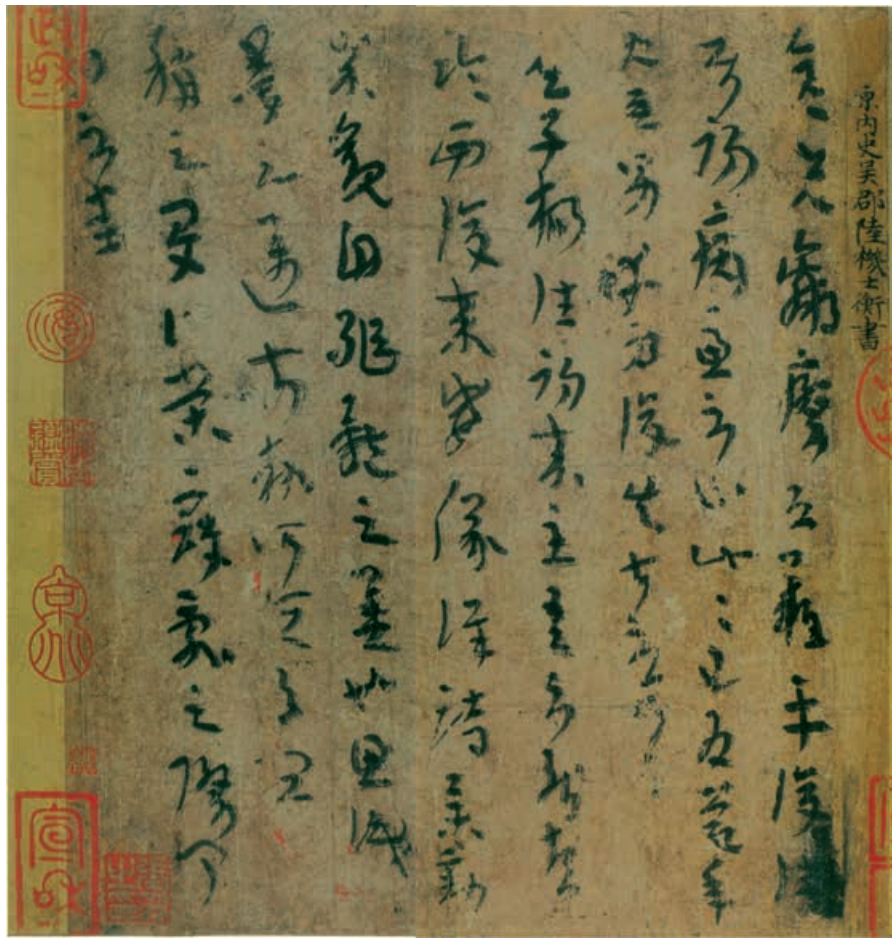 原内史吳郡陸機士衡書
彦先羸瘵恐難平復往屬
初病慮不止此此已為慶承
使唯男幸為復失前憂耳
吳子楊往初來主吾不能盡
臨西復來威儀詳跱舉動
成觀自軀體之美也思識
量之邁前勢所恒有宜
稱之夏伯榮寇亂之際聞
問不悉
政和
宣和